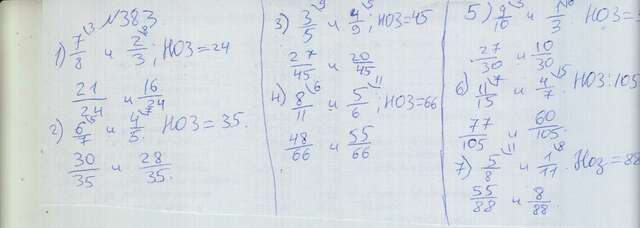 №383.
1) 7/8 и 2/3; НОЗ=24
21/24 и 16/24
2) 6/7 и 4/5. НОЗ=35.
30/35 и 28/35.
3) 3/5 и 4/9; НОЗ=45
27/45 и 20/45
4) 8/11 и 5/6; НОЗ=66
48/66 и 55/66
5) 9/10 и 1/3. НОЗ=
27/30 и 10/30
6) 11/15 и 4/7. НОЗ:105
77/105 и 60/105.
7) 5/8 и 1/11. НОЗ=88
55/88 и 8/88.